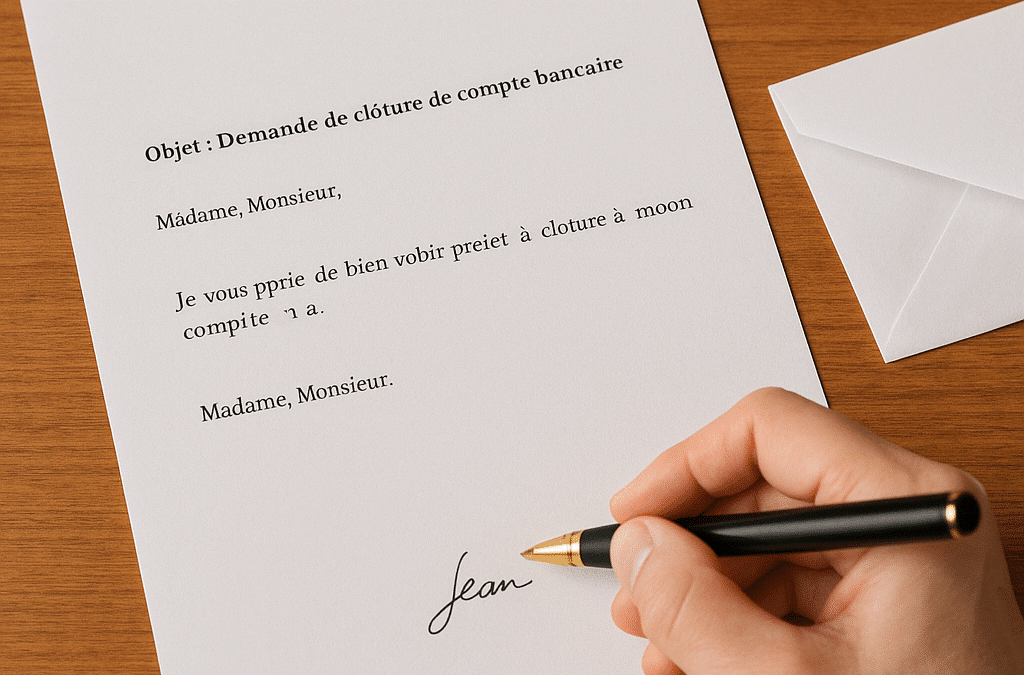 Objet : Demande de clóture de compte bancaire
Mádame, Monsieur,
Je vous pprie de bien vobir preiet à cloture à moon
compite a.
Madame, Monsieur.
Jean